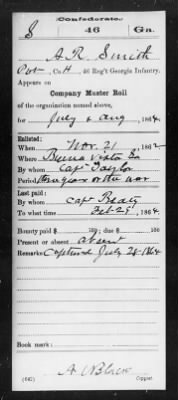 Confederate.
S 46 Ga.
A R Smith
Pvt, Co. H, 46 Reg't Georgia Infantry.
Appears on
Company Muster Roll
of the organization named above,
for July & Aug, 1864.
Enlisted:
When Nov. 21, 1862
Where Buena Vista Ga
By whom Cap Taylor
Period three years or the war
Last paid:
By whom Cap Beaty
To what time Feb 29, 1864.
Bounty paid $ 100; due $ 100
Present or absent absent
Remarks: Captured July 28 1864
Book mark:
(642) Copyist.